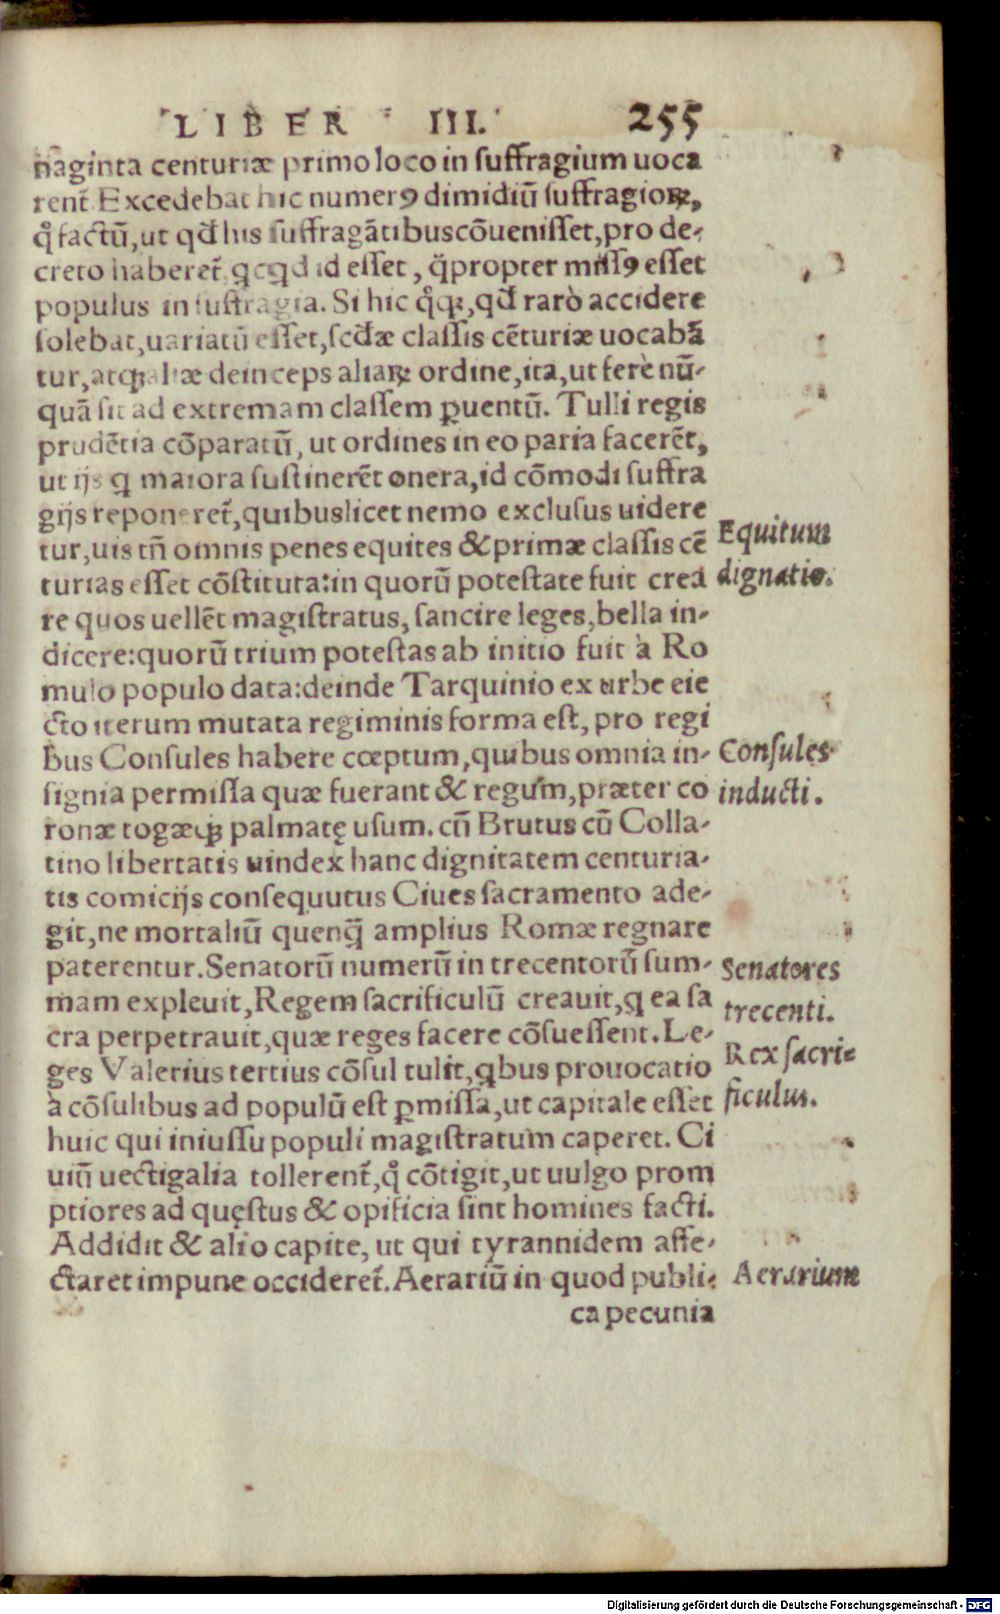 LIBER III. 255
naginta centuriæ primo loco in suffragium uoca
rent̃. Excedebat hic numerꝰ dimidiũ suffragioꝝ,
qͦ factũ, ut qd̃ his suffragãtibus cõuenisset, pro de-
creto haberet̃, qcqd id esset, q̃propter missꝰ esset
populus in suffragia. Si hic qͦqꝫ, qd̃ rarò accidere
solebat, uariatũ esset, scd̃æ classis cẽturiæ uocabã
tur, atqꝫ aliæ deinceps aliaꝝ ordine, ita, ut ferè nũ-
quã sit ad extremam classem ꝑuentũ. Tulli regis
prudẽtia cõparatũ, ut ordines in eo paria facerẽt,
ut ijs q maiora sustinerẽt onera, id cõmodi suffra
gijs reponeret̃, quibuslicet nemo exclusus uidere
tur, uis tñ omnis penes equites & primæ classis cẽ
turias esset cõstituta: in quorũ potestate fuit crea
re quos uellẽt magistratus, sancire leges, bella in-
dicere: quorũ trium potestas ab initio fuit à Ro
mulo populo data: deinde Tarquinio ex urbe eie
cto iterum mutata regiminis forma est, pro regi
bus Consules habere cœptum, quibus omnia in-
signia permissa quæ fuerant & regum, præter co
ronæ togæqꝫ palmatę usum. cũ Brutus cũ Colla-
tino libertatis uindex hanc dignitatem centuria-
tis comicijs consequutus Ciues sacramento ade-
git, ne mortaliũ quenq̃ amplius Romæ regnare
paterentur. Senatorũ numerũ in trecentorũ sum-
mam expleuit, Regem sacrificulũ creauit, q ea sa
cra perpetrauit, quæ reges facere cõsuessent. Le-
ges Valerius tertius cõsul tulit, qbus prouocatio
à cõsulibus ad populũ est ꝑmissa, ut capitale esset
huic qui iniussu populi magistratum caperet. Ci
uiũ uectigalia tollerent̃, qͦ cõtigit, ut uulgo prom
ptiores ad quęstus & opificia sint homines facti.
Addidit & alio capite, ut qui tyrannidem affe-
ctaret impune occideret̃. Aerariũ in quod publi-
ca pecunia
Equitum
dignatio.
Consules
inducti.
Senatores
trecenti.
Rex sacri-
ficulus.
Aerarium
Digitalisierung gefördert durch die Deutsche Forschungsgemeinschaft - DFG